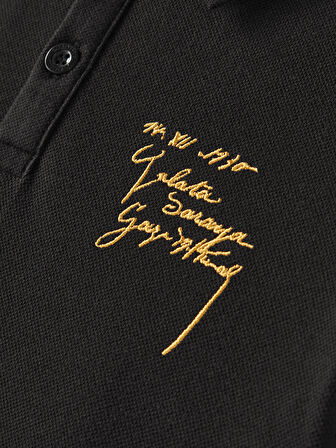 XII 1930
Galata
Saraya
Gazi M Kemal